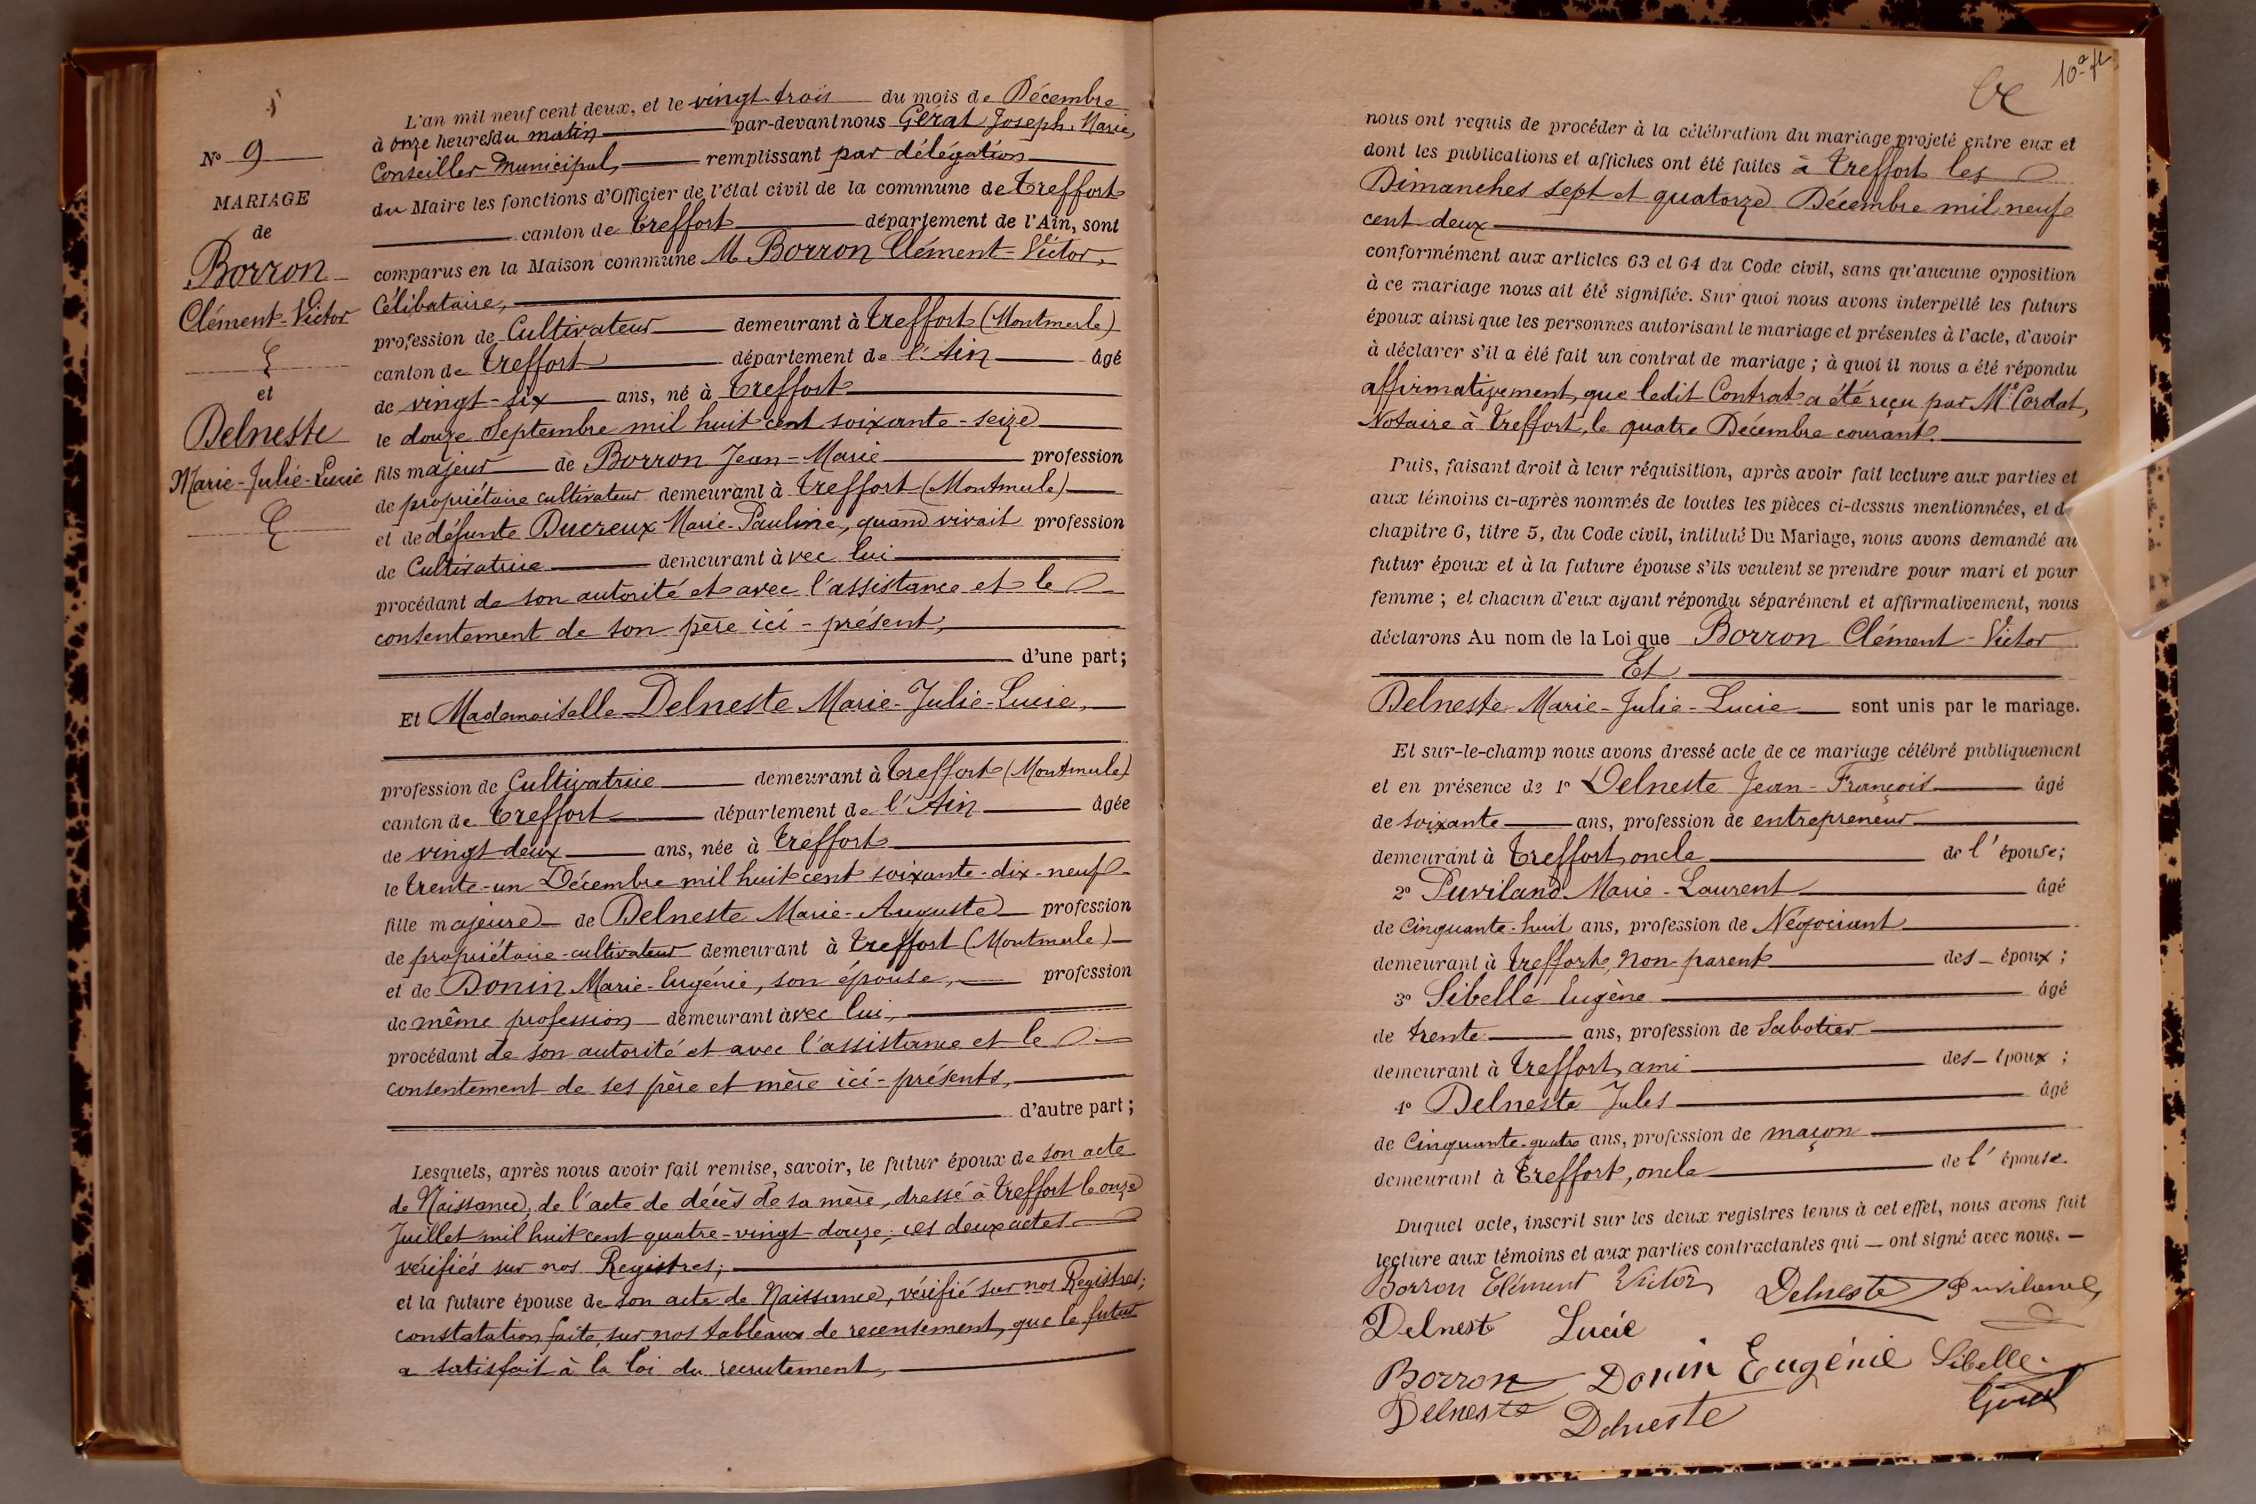 N° 9
MARIAGE
de
Borron
Clément-Victor
et
Delneste
Marie-Julie-Lucie
L'an mil neuf cent deux, et le vingt-trois du mois de Décembre
à onze heures du matin par-devant nous Gérat Joseph-Marie,
Conseiller Municipal, remplissant par délégation
du Maire les fonctions d'Officier de l'état civil de la commune de Treffort
canton de Treffort département de l'Ain, sont
comparus en la Maison commune M Borron Clément-Victor,
Célibataire,
profession de Cultivateur demeurant à Treffort (Montmerle)
canton de Treffort département de l'Ain âgé
de vingt-six ans, né à Treffort
le douze Septembre mil huit cent soixante-seize
fils majeur de Borron Jean-Marie profession
de propriétaire cultivateur demeurant à Treffort (Montmerle)
et de défunte Ducreux Marie-Pauline, quand vivait profession
de Cultivatrice demeurant àvec lui
procédant de son autorité et avec l'assistance et le
consentement de son père ici-présent,
d'une part;
Et Mademoiselle Delneste Marie-Julie-Lucie,
profession de Cultivatrice demeurant à Treffort (Montmerle)
canton de Treffort département de l'Ain âgée
de vingt deux ans, née à Treffort
le trente-un Décembre mil huit cent soixante-dix-neuf
fille majeure de Delneste Marie-Auguste profession
de propriétaire-cultivateur demeurant à Treffort (Montmerle)
et de Donin Marie-Eugénie, son épouse, profession
de même profession demeurant àvec lui,
procédant de son autorité et avec l'assistance et le
consentement de ses père et mère ici-présents,
d'autre part;
Lesquels, après nous avoir fait remise, savoir, le futur époux de son acte
de Naissance, de l'acte de décès de sa mère, dressé à Treffort le onze
Juillet mil huit cent quatre-vingt-douze; ces deux actes
vérifiés sur nos Registres;
et la future épouse de son acte de Naissance, vérifié sur nos Registres;
constatation faite, sur nos tableaux de recensement, que le futur
a satisfait à la loi du recrutement,
10e ft
nous ont requis de procéder à la célébration du mariage projeté entre eux et
dont les publications et affiches ont été faites à Treffort les
Dimanches sept et quatorze Décembre mil neuf
cent deux
conformément aux articles 63 et 64 du Code civil, sans qu'aucune opposition
à ce mariage nous ait été signifiée. Sur quoi nous avons interpellé les futurs
époux ainsi que les personnes autorisant le mariage et présentes à l'acte, d'avoir
à déclarer s'il a été fait un contrat de mariage; à quoi il nous a été répondu
affirmativement, que ledit Contrat a été reçu par Me Cordat,
Notaire à Treffort, le quatre Décembre courant.
Puis, faisant droit à leur réquisition, après avoir fait lecture aux parties et
aux témoins ci-après nommés de toutes les pièces ci-dessus mentionnées, et d
chapitre 6, titre 5, du Code civil, intitulé Du Mariage, nous avons demandé au
futur époux et à la future épouse s'ils veulent se prendre pour mari et pour
femme; et chacun d'eux ayant répondu séparément et affirmativement, nous
déclarons Au nom de la Loi que Borron Clément-Victor
Et
Delneste Marie-Julie-Lucie sont unis par le mariage.
Et sur-le-champ nous avons dressé acte de ce mariage célébré publiquement
et en présence de 1° Delneste Jean-François âgé
de soixante ans, profession de entrepreneur
demeurant à Treffort, oncle de l'épouse;
2° Puviland Marie-Laurent âgé
de Cinquante-huit ans, profession de Négociant
demeurant à Treffort, non-parent des époux;
3° Sibelle Eugène âgé
de trente ans, profession de Sabotier
demeurant à Treffort, ami des époux;
4° Delneste Jules âgé
de Cinquante-quatre ans, profession de maçon
demeurant à Treffort, oncle de l'épouse.
Duquel acte, inscrit sur les deux registres tenus à cet effet, nous avons fait
lecture aux témoins et aux parties contractantes qui ont signé avec nous.
Borron Clément Victor Delneste Puviland
Delneste Lucie
Borron Donin Eugénie Sibelle
Delneste Delneste Gérat